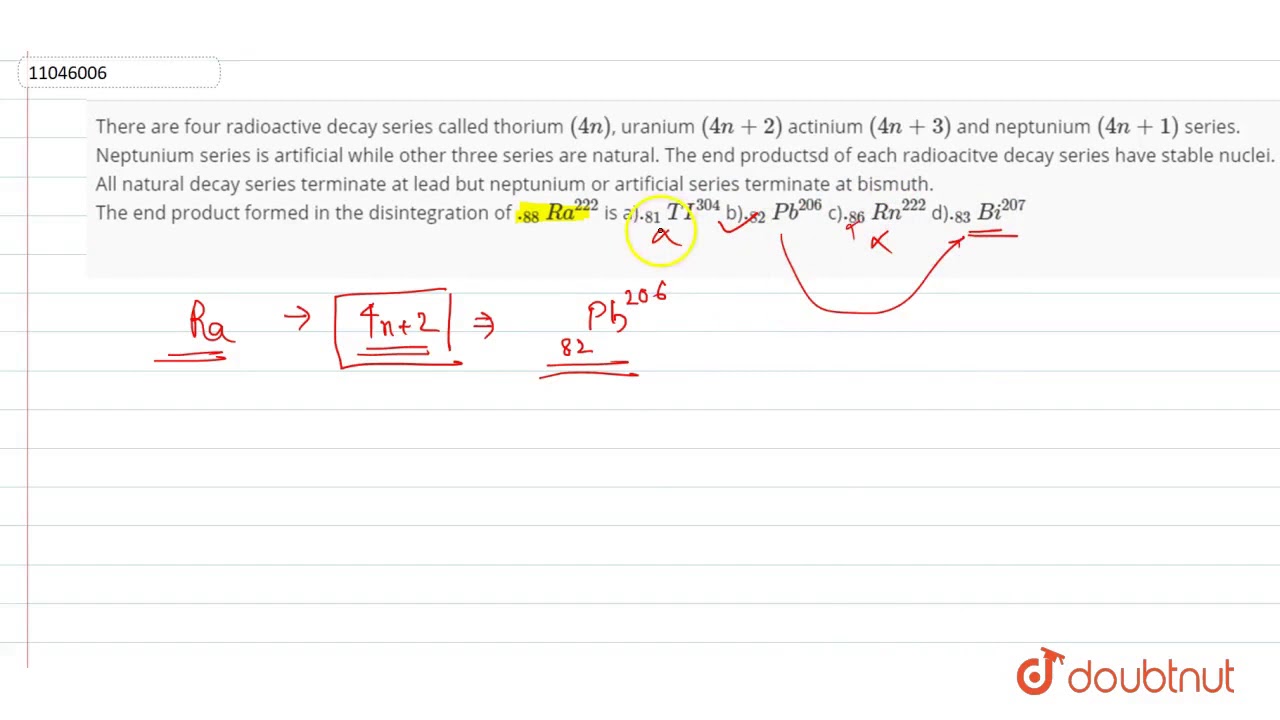 11046006
There are four radioactive decay series called thorium (4n), uranium (4n + 2) actinium (4n + 3) and neptunium (4n + 1) series.
Neptunium series is artificial while other three series are natural. The end productsd of each radioacitve decay series have stable nuclei.
All natural decay series terminate at lead but neptunium or artificial series terminate at bismuth.
The end product formed in the disintegration of .₈₈ Ra²²² is a).₈₁ TI³⁰⁴ b).₈₂ Pb²⁰⁶ c).₈₆ Rn²²² d).₈₃ Bi²⁰⁷
Ra → 4n+2 ⇒ ₈₂Pb²⁰⁶
doubtnut